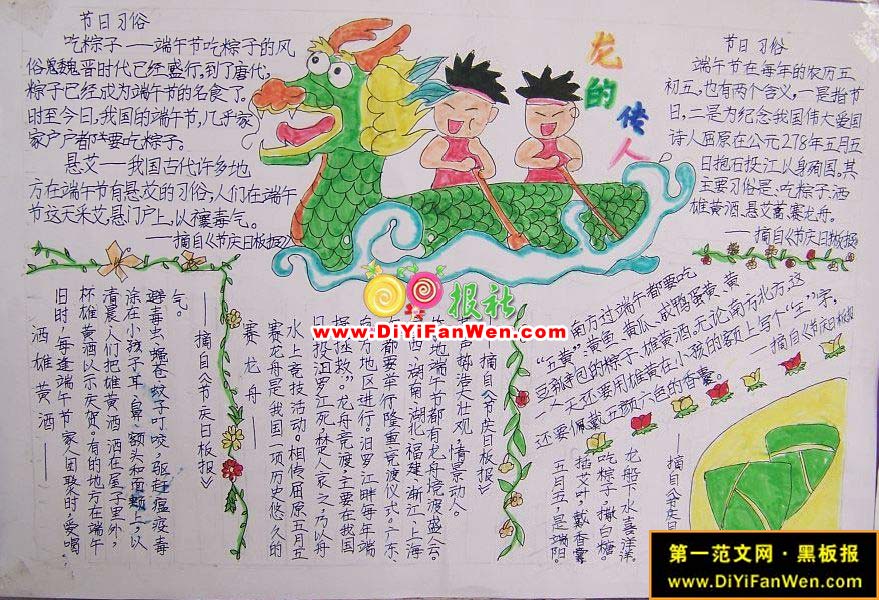 节日习俗
吃粽子——端午节吃粽子的风
俗,魏晋时代已经盛行,到了唐代,
粽子已经成为端午节的名食了。
时至今日,我国的端午节,几乎家
家户户都要吃粽子。
悬艾——我国古代许多地
方在端午节有悬艾的习俗,人们在端午
节这天采艾,悬门户上,以禳毒气。
——摘自《节庆日板报》
龙的传人
节日习俗
端午节在每年的农历五
初五,也有两个含义,一是指节
日,二是为纪念我国伟大爱国
诗人屈原在公元278年五月五
日抱石投江以身殉国。其
主要习俗是、吃粽子、洒
雄黄酒、悬艾蒿、赛龙舟。
——摘自《节庆日板报》
报社
www.DiYiFanWen.com
南方过端午都要吃
“五黄”:黄鱼、黄瓜、咸鸭蛋黄、黄
豆瓣包的粽子、雄黄酒。无论南方北方,这
一天还要用雄黄在小孩的额上写个“王”字,
还要佩戴五颜六色的香囊。
——摘自《节庆日板报
洒雄黄酒——
旧时,每逢端午节家人团聚时,爱喝
杯雄黄酒以示庆贺。有的地方在端午
清晨,人们把雄黄酒洒在屋子里外,
涂在小孩子耳、鼻、额头和面颊上,以
避毒虫、蝇苍蚊子叮咬,驱赶瘟疫毒
气。
——摘自《节庆日板报》
赛龙舟——
赛龙舟是我国一项历史悠久的
水上竞技活动。相传屈原五月五
日投汨罗江死,楚人哀之,乃以舟
楫拯救”。龙舟竞渡,主要在我国
南方地区进行。汨罗江畔每年端
午都要举行隆重竞渡仪式。广东、
江西、湖南、湖北、福建、浙江、上海
等地端午节都有龙舟竞渡盛会。
声势浩大壮观,情景动人。
摘自《节庆日板报》
五月五,是端阳。
插艾叶,戴香囊
吃粽子,撒白糖。
龙船下水喜洋洋。
——摘自《节庆日
第一范文网·黑板报
www.DiYiFanWen.com